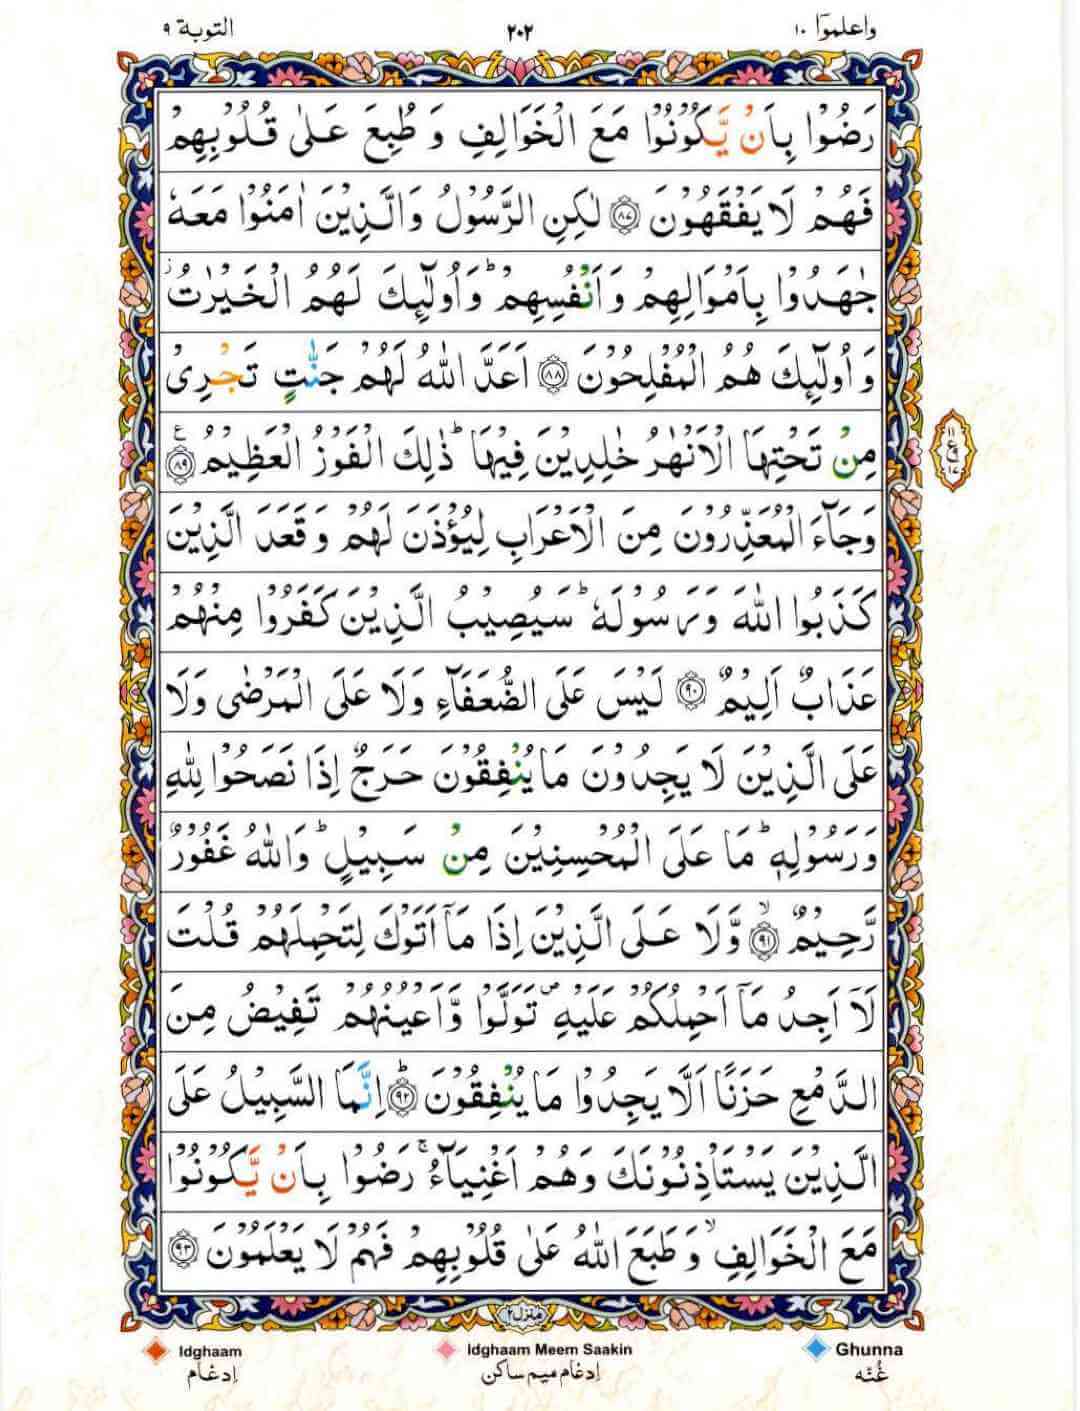 واعلموٓا ١٠
٢٠٢
التوبة ٩
رَضُوْا بِاَنْ يَّكُوْنُوْا مَعَ الْخَوَالِفِ وَ طُبِعَ عَلٰى قُلُوْبِهِمْ
فَهُمْ لَا يَفْقَهُوْنَ ﴿٨٧﴾ لٰكِنِ الرَّسُوْلُ وَالَّذِيْنَ اٰمَنُوْا مَعَهٗ
جٰهَدُوْا بِاَمْوَالِهِمْ وَاَنْفُسِهِمْ ؕ وَاُولٰٓئِكَ لَهُمُ الْخَيْرٰتُ ؗ
وَ اُولٰٓئِكَ هُمُ الْمُفْلِحُوْنَ ﴿٨٨﴾ اَعَدَّ اللّٰهُ لَهُمْ جَنّٰتٍ تَجْرِىْ
مِنْ تَحْتِهَا الْاَنْهٰرُ خٰلِدِيْنَ فِيْهَا ؕ ذٰلِكَ الْفَوْزُ الْعَظِيْمُ ﴿٨٩﴾ ع
وَجَآءَ الْمُعَذِّرُوْنَ مِنَ الْاَعْرَابِ لِيُؤْذَنَ لَهُمْ وَقَعَدَ الَّذِيْنَ
كَذَبُوا اللّٰهَ وَرَسُوْلَهٗ ؕ سَيُصِيْبُ الَّذِيْنَ كَفَرُوْا مِنْهُمْ
عَذَابٌ اَلِيْمٌ ﴿٩٠﴾ لَيْسَ عَلَى الضُّعَفَآءِ وَلَا عَلَى الْمَرْضٰى وَلَا
عَلَى الَّذِيْنَ لَا يَجِدُوْنَ مَا يُنْفِقُوْنَ حَرَجٌ اِذَا نَصَحُوْا لِلّٰهِ
وَرَسُوْلِهٖ ؕ مَا عَلَى الْمُحْسِنِيْنَ مِنْ سَبِيْلٍ ؕ وَاللّٰهُ غَفُوْرٌ
رَّحِيْمٌ ۙ﴿٩١﴾ وَّلَا عَلَى الَّذِيْنَ اِذَا مَاۤ اَتَوْكَ لِتَحْمِلَهُمْ قُلْتَ
لَاۤ اَجِدُ مَاۤ اَحْمِلُكُمْ عَلَيْهِ ۪ تَوَلَّوْا وَّاَعْيُنُهُمْ تَفِيْضُ مِنَ
الدَّمْعِ حَزَنًا اَلَّا يَجِدُوْا مَا يُنْفِقُوْنَ ؕ﴿٩٢﴾ اِنَّمَا السَّبِيْلُ عَلَى
الَّذِيْنَ يَسْتَاْذِنُوْنَكَ وَهُمْ اَغْنِيَآءُ ۚ رَضُوْا بِاَنْ يَّكُوْنُوْا
مَعَ الْخَوَالِفِ ۙ وَطَبَعَ اللّٰهُ عَلٰى قُلُوْبِهِمْ فَهُمْ لَا يَعْلَمُوْنَ ﴿٩٣﴾
١١
ع
١٧
منزل ٢
Idghaam
Idghaam Meem Saakin
Ghunna
إدغام
إدغام ميم ساكن
غُنّه